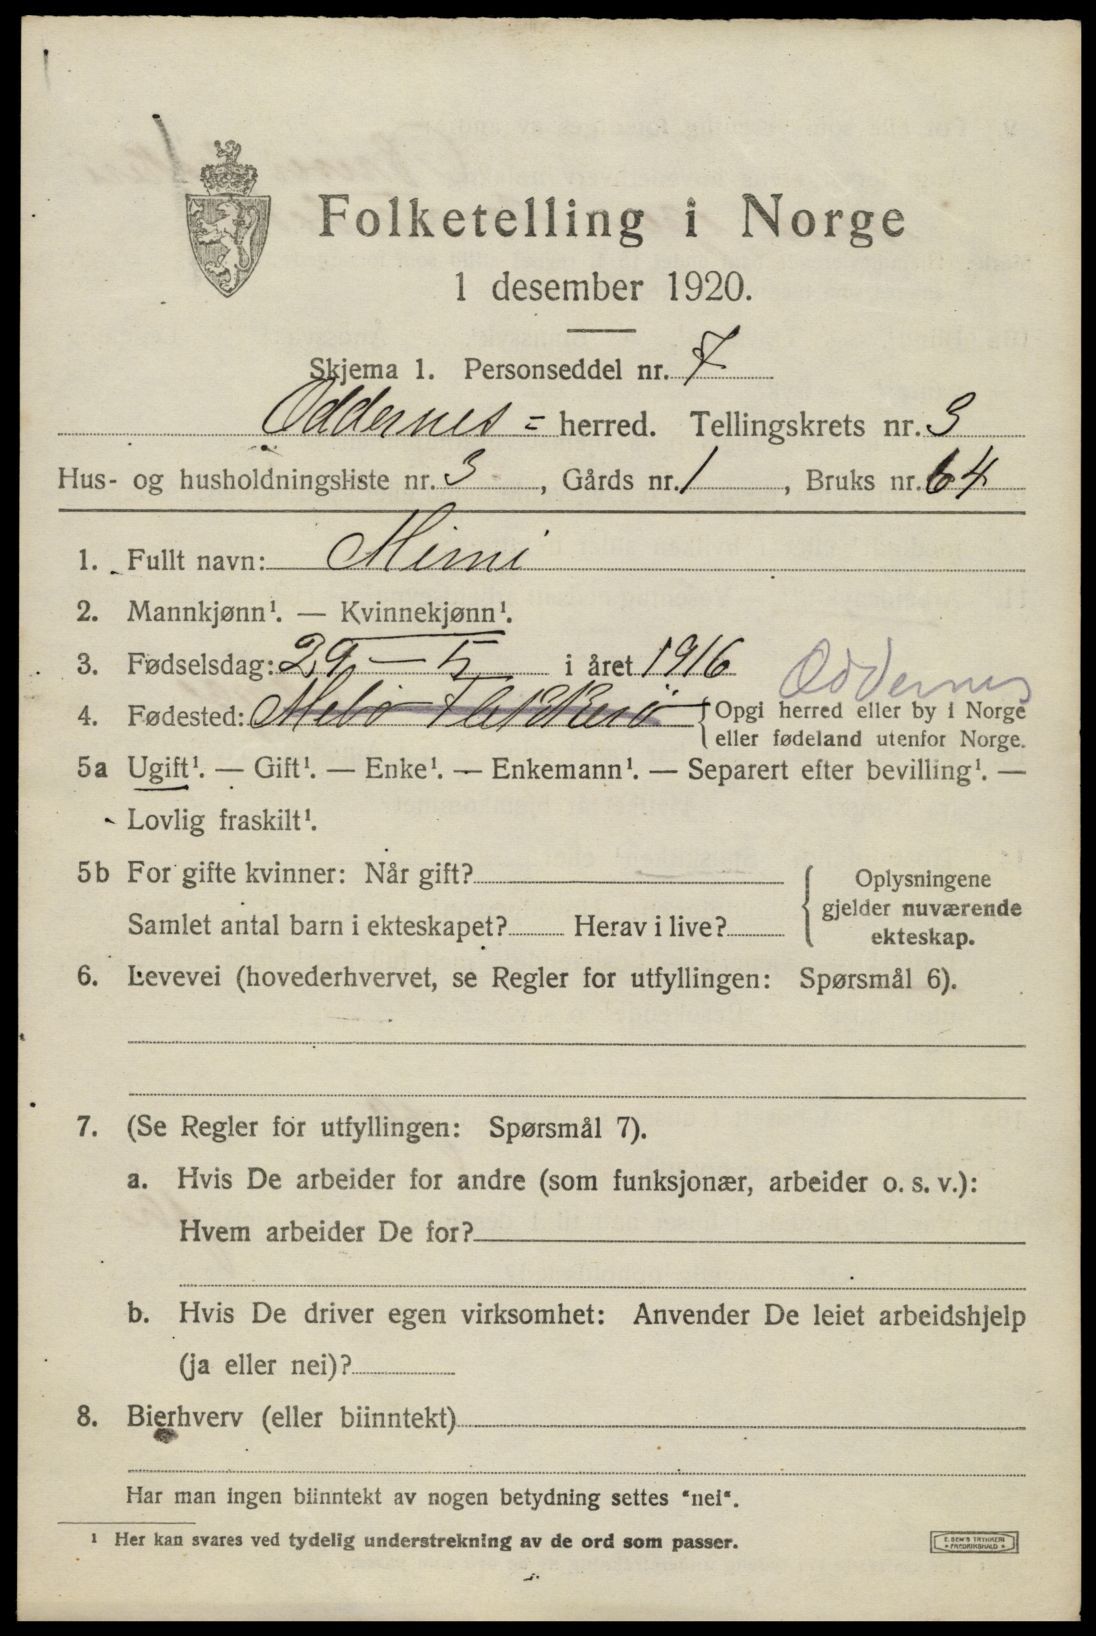 Folketelling i Norge
1 desember 1920.
Skjema 1. Personseddel nr. 7
Oddernes = herred. Tellingskrets nr. 3
Hus- og husholdningsliste nr. 3, Gårds nr. 1, Bruks nr. 64
1. Fullt navn: Mimi
2. Mannkjønn¹. — Kvinnekjønn¹.
3. Fødselsdag: 29 – 5 i året 1916
Oddernes
4. Fødested: Mebø Flekkerø {Opgi herred eller by i Norge
eller fødeland utenfor Norge.
5a Ugift¹. — Gift¹. — Enke¹. — Enkemann¹. — Separert efter bevilling¹. —
Lovlig fraskilt¹.
5b For gifte kvinner: Når gift?
Samlet antal barn i ekteskapet? Herav i live?
{ Oplysningene
gjelder nuværende
ekteskap.
6. Levevei (hovederhvervet, se Regler for utfyllingen: Spørsmål 6).
7. (Se Regler for utfyllingen: Spørsmål 7).
a. Hvis De arbeider for andre (som funksjonær, arbeider o. s. v.):
Hvem arbeider De for?
b. Hvis De driver egen virksomhet: Anvender De leiet arbeidshjelp
(ja eller nei)?
8. Bierhverv (eller biinntekt)
Har man ingen biinntekt av nogen betydning settes "nei".
¹ Her kan svares ved tydelig understrekning av de ord som passer.
E. SEM'S TRYKKERI
* FREDRIKSHALD *